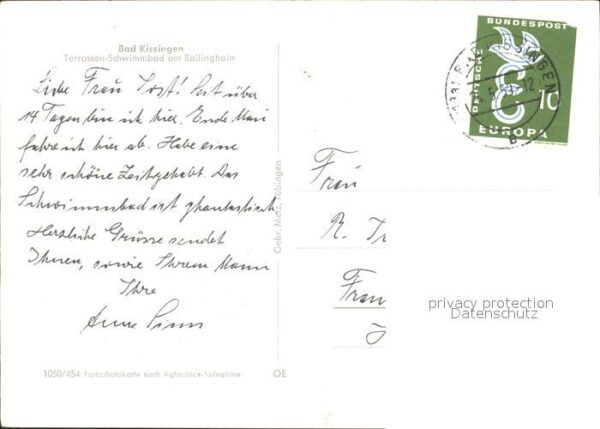 Bad Kissingen
Terrassen-Schwimmbad am Ballinghain
Liebe Frau Post! Seit über
14 Tagen bin ich hier. Ende Mai
fahre ich hier ab. Habe eine
sehr schöne Zeit gehabt. Das
Schwimmbad ist phantastisch
Herzliche Grüsse sendet
Ihnen, sowie Ihrem Mann
Ihre
Anne
Gebr. Metz, Tübingen
1050/454 Farbphotokarte nach Agfacolor-Aufnahme
OE
DEUTSCHE
BUNDESPOST
10
EUROPA
Frau
R.
privacy protection
Datenschutz